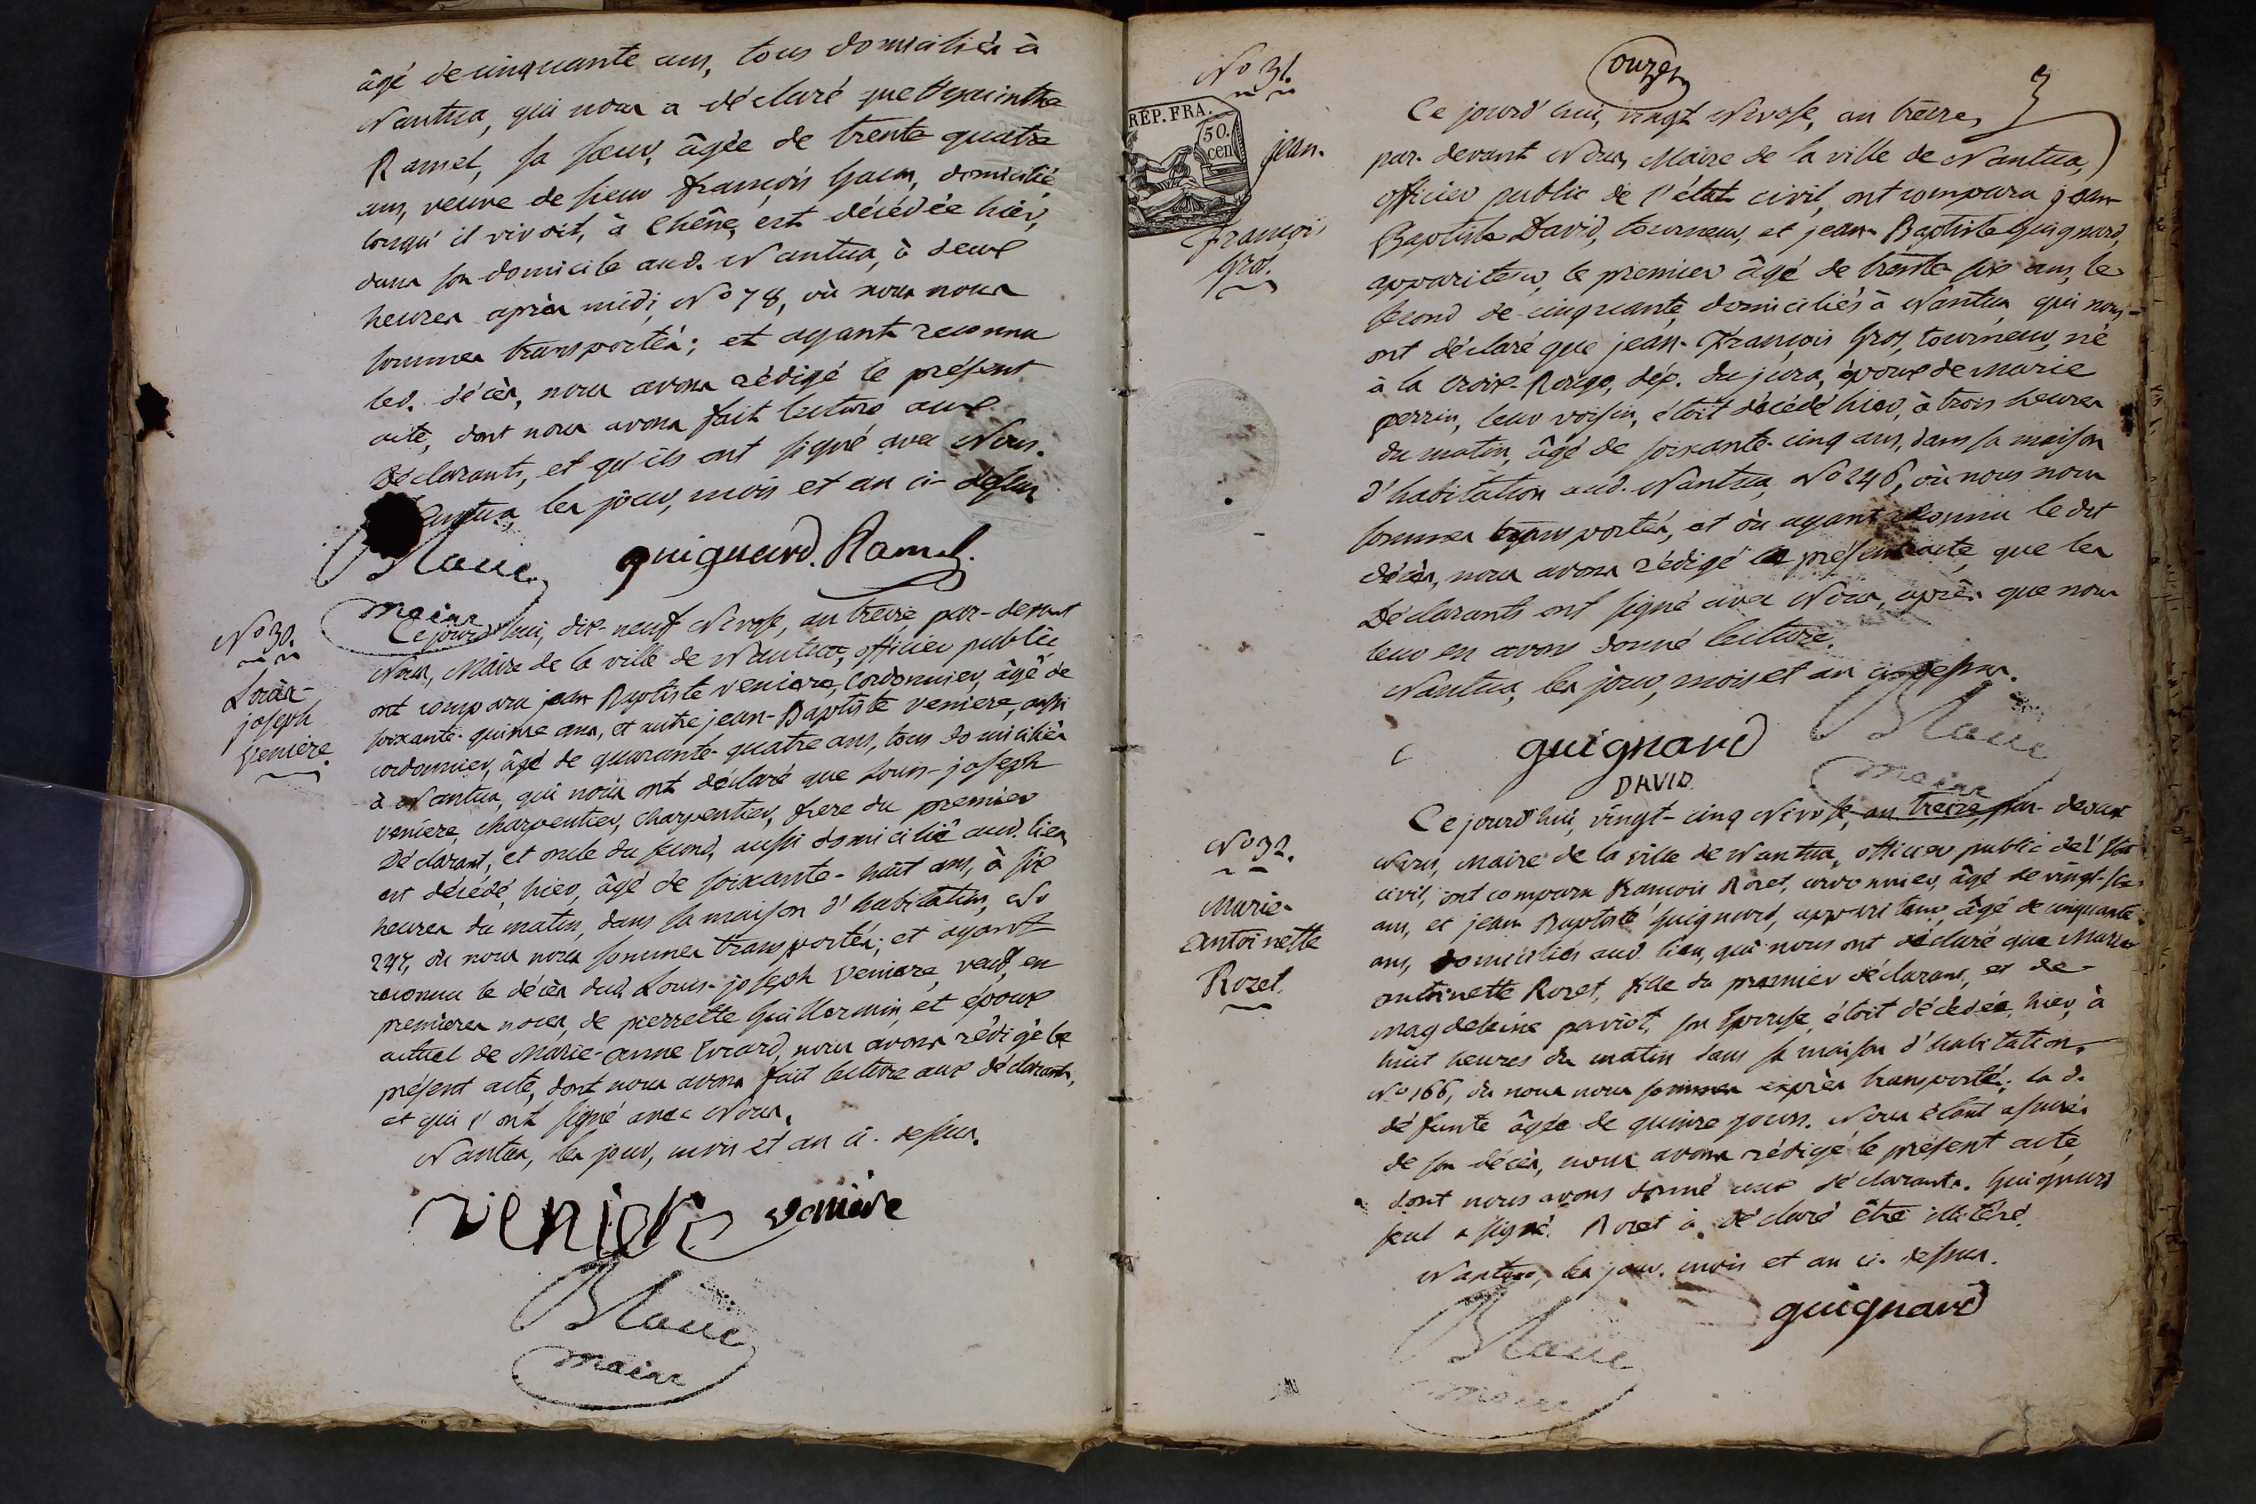 âgé de cinquante ans, tous domiciliés à
Nantua, qui nous a déclaré que Hyacinthe
Ramel, sa sœur, âgée de trente quatre
ans, veuve de sieur françois, domicilié
lorsqu'il vivoit, à Chêne, est décédée hier,
dans son domicile aud. Nantua, à deux
heures après midi, No 78, où nous nous
sommes transportés; et ayant reconnu
led. décès, nous avons rédigé le présent
acte, dont nous avons fait lecture aux
Déclarants, et qu'ils ont signé avec Nous.
Nantua, les jour, mois et an ci-dessus
guignard. Ramel.
Blanc
maire
No 30.
Louis-
joseph
Veniere.
Ce jourd'hui, dix-neuf Nivose, an treize, par-devant
Nous, Maire de la ville de Nantua, officier public,
ont comparu jean Baptiste veniere, Cordonnier, âgé de
soixante-quinze ans, et autre jean-Baptiste veniere, aussi
cordonnier, âgé de quarante-quatre ans, tous domiciliés
à Nantua, qui nous ont déclaré que Louis-joseph
veniere, charpentier, charpentier, frere du premier
Déclarant, et oncle du second, aussi domicilié aud. lieu
est décédé, hier, âgé de soixante-huit ans, à six
heures du matin, dans sa maison d'habitation, No
247, où nous nous sommes transportés; et ayant
reconnu le décès dud. Louis-joseph veniere, veuf, en
premieres noces, de pierrette Guillermin, et époux
actuel de Marie-anne Evrard, nous avons rédigé le
présent acte, dont nous avons fait lecture aux déclarants,
et qui l'ont signé avec Nous.
Nantua, les jour, mois et an ci-dessus.
veniere veniere
Blanc
maire
onze
No 31.
RÉP. FRA.
50.
cen
jean-
François
Gros.
Ce jourd'hui, vingt Nivose, an treize,
par-devant Nous, Maire de la ville de Nantua,
officier public de l'état civil, ont comparu jean
Baptiste David, tourneur, et jean-Baptiste Guignard,
appariteur, le premier âgé de trente six ans, le
second de cinquante, domiciliés à Nantua qui nous
ont déclaré que jean-François Gros, tourneur, né
à la Croix-Rouge, dép. du jura, époux de Marie
perrin, leur voisin, étoit décédé hier, à trois heures
du matin, âgé de soixante-cinq ans, dans sa maison
d'habitation aud. Nantua, No 246, où nous nous
sommes transportés, et où ayant reconnu le dit
décès, nous avons rédigé le présent acte, que les
Déclarants ont signé avec Nous, après que nous
leur en avons donné lecture.
Nantua, les jour, mois et an ci-dessus.
guignard
Blanc
maire
DAVID
No 32.
Marie-
Antoinette
Rozet.
Ce jourd'hui, vingt-cinq Nivose, an treize, par-devant
Nous, Maire de la ville de Nantua, officier public de l'état
civil, ont comparu François Rozet, cordonnier, âgé de vingt-six
ans, et jean Baptiste Guignard, appariteur, âgé de cinquante
ans, domiciliés aud. lieu, qui nous ont déclaré que Marie
antoinette Rozet, fille du premier déclarant, et de
Magdeleine paviot, son Epouse, étoit décédée, hier, à
huit heures du matin dans sa maison d'habitation,
No 166, où nous nous sommes exprès transportés; la d.
défunte âgée de quinze jours. Nous étant assurés
de son décès, nous avons rédigé le présent acte,
dont nous avons donné aux déclarants. Guignard
seul a signé. Rozet a déclaré être illitéré.
Nantua, les jour, mois et an ci-dessus.
guignard
Blanc
maire